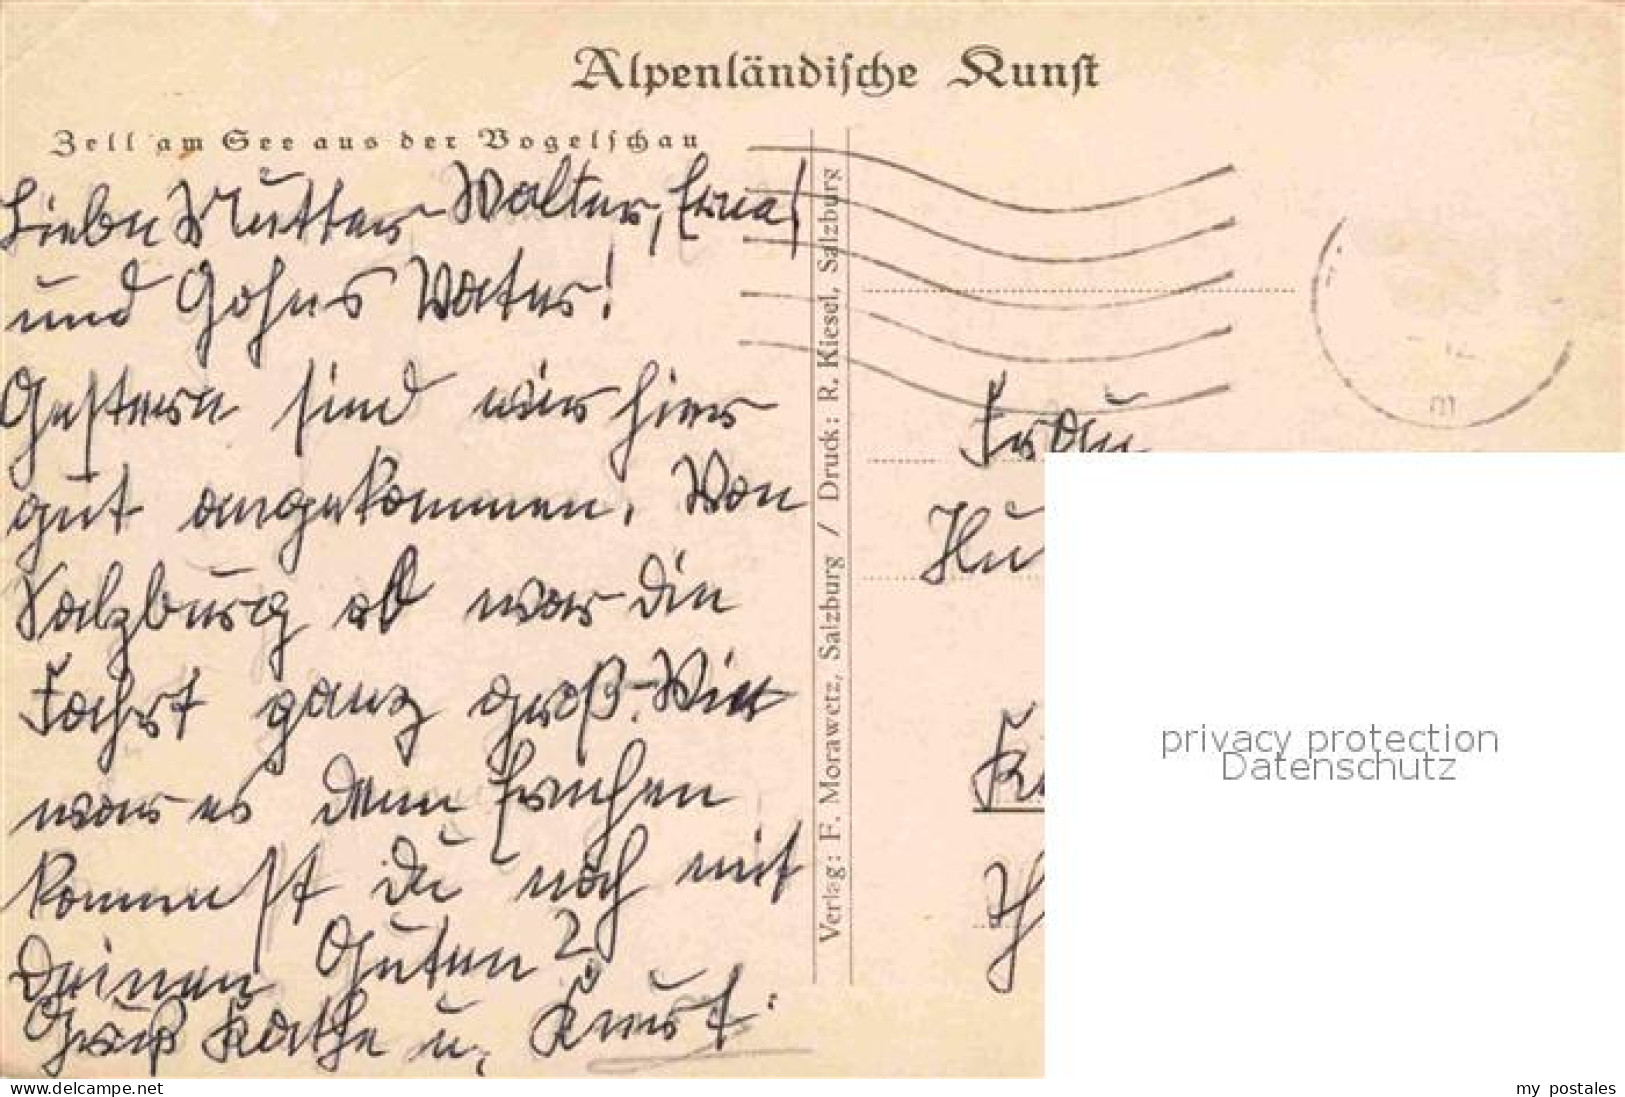 Alpenländische Kunst
Zell am See aus der Vogelschau
Liebe Mutter Walter, Erna
und Gohes Vater!
Gestern sind wir hier
gut angekommen. Von
Salzburg ab war die
Fahrt ganz groß. Wie
war es denn Ernchen
kommst du noch mit
Deinen Guten?
Gruß Käthe u. Kurt.
Verlag: F. Morawetz, Salzburg / Druck: R. Kiesel, Salzburg
Frau
Hu
privacy protection
Datenschutz
www.delcampe.net
my_postales